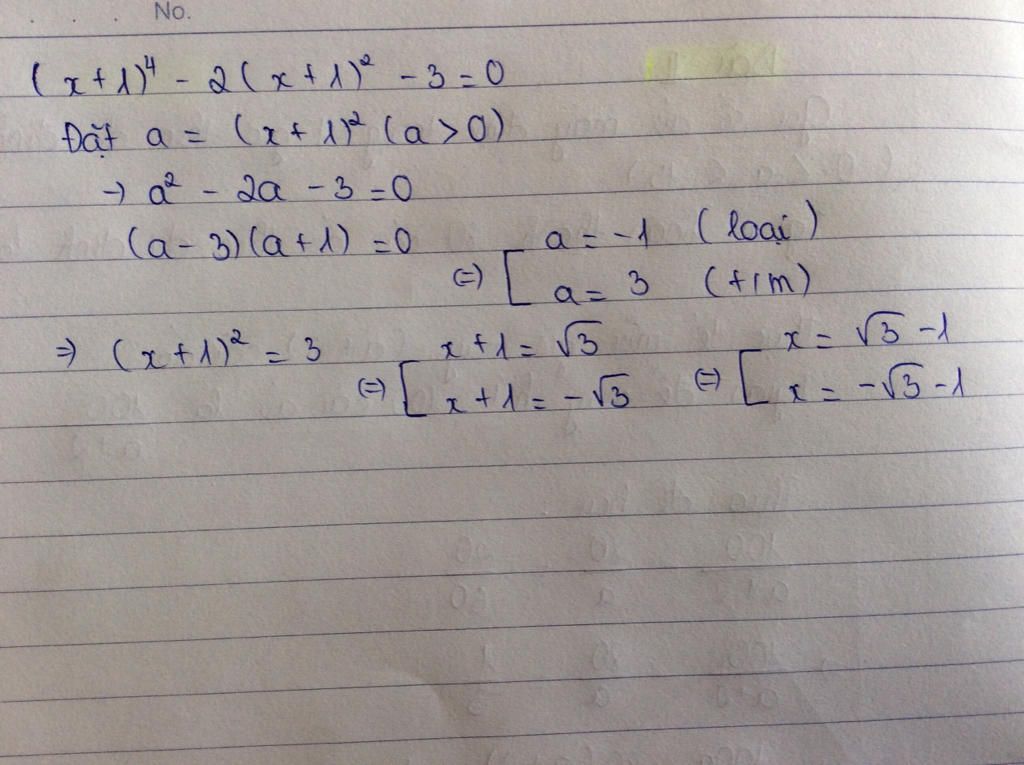 No.
(x+1)⁴ - 2(x+1)² - 3 = 0
Đặt a = (x+1)² (a > 0)
→ a² - 2a - 3 = 0
(a - 3)(a + 1) = 0 ⇔ [ a = -1 (loại)
a = 3 (t/m)
⇒ (x+1)² = 3 ⇔ [ x + 1 = √3 ⇔ [ x = √3 - 1
x + 1 = -√3 x = -√3 - 1